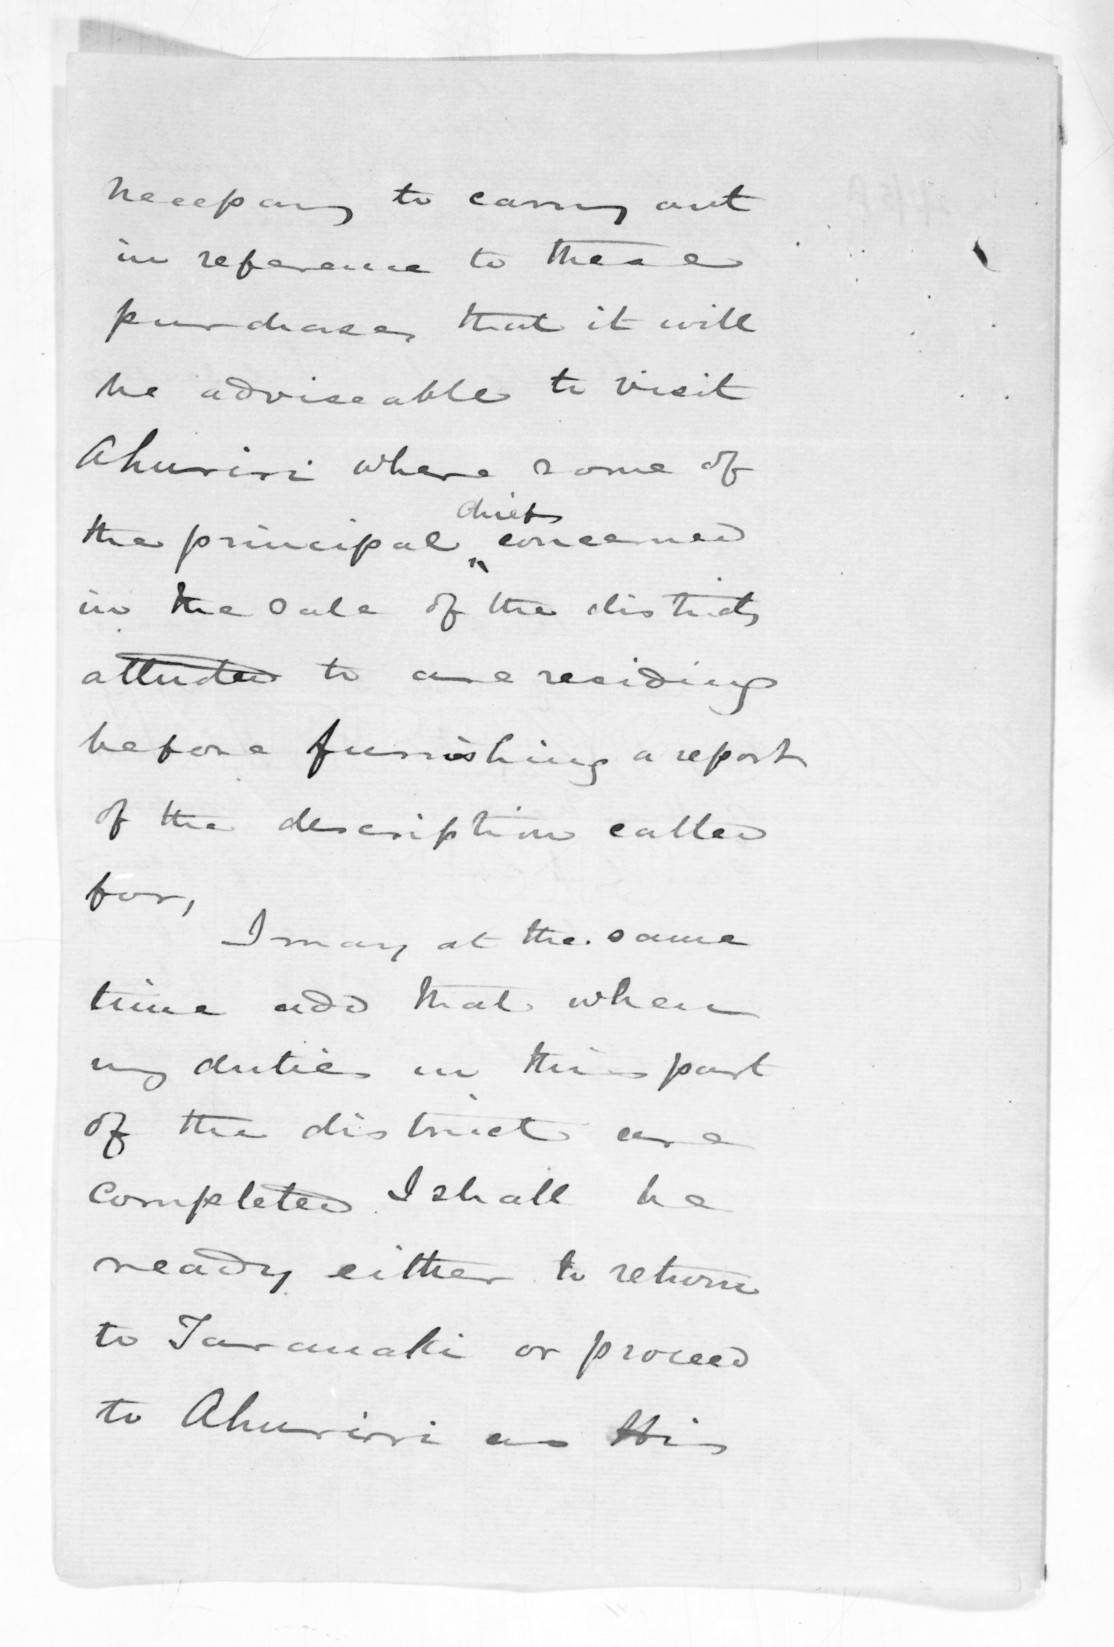 necessary to carry out
in reference to these
purchases, that it will
be adviseable to visit
Ahuriri where some of
chiefs
the principal ‸ concerned
in the sale of the districts
alluded to are residing
before furnishing a report
of the description called
for,
I may at the same
time add that when
my duties in this part
of the district are
completed I shall be
ready either to return
to Taranaki or proceed
to Ahuriri as His